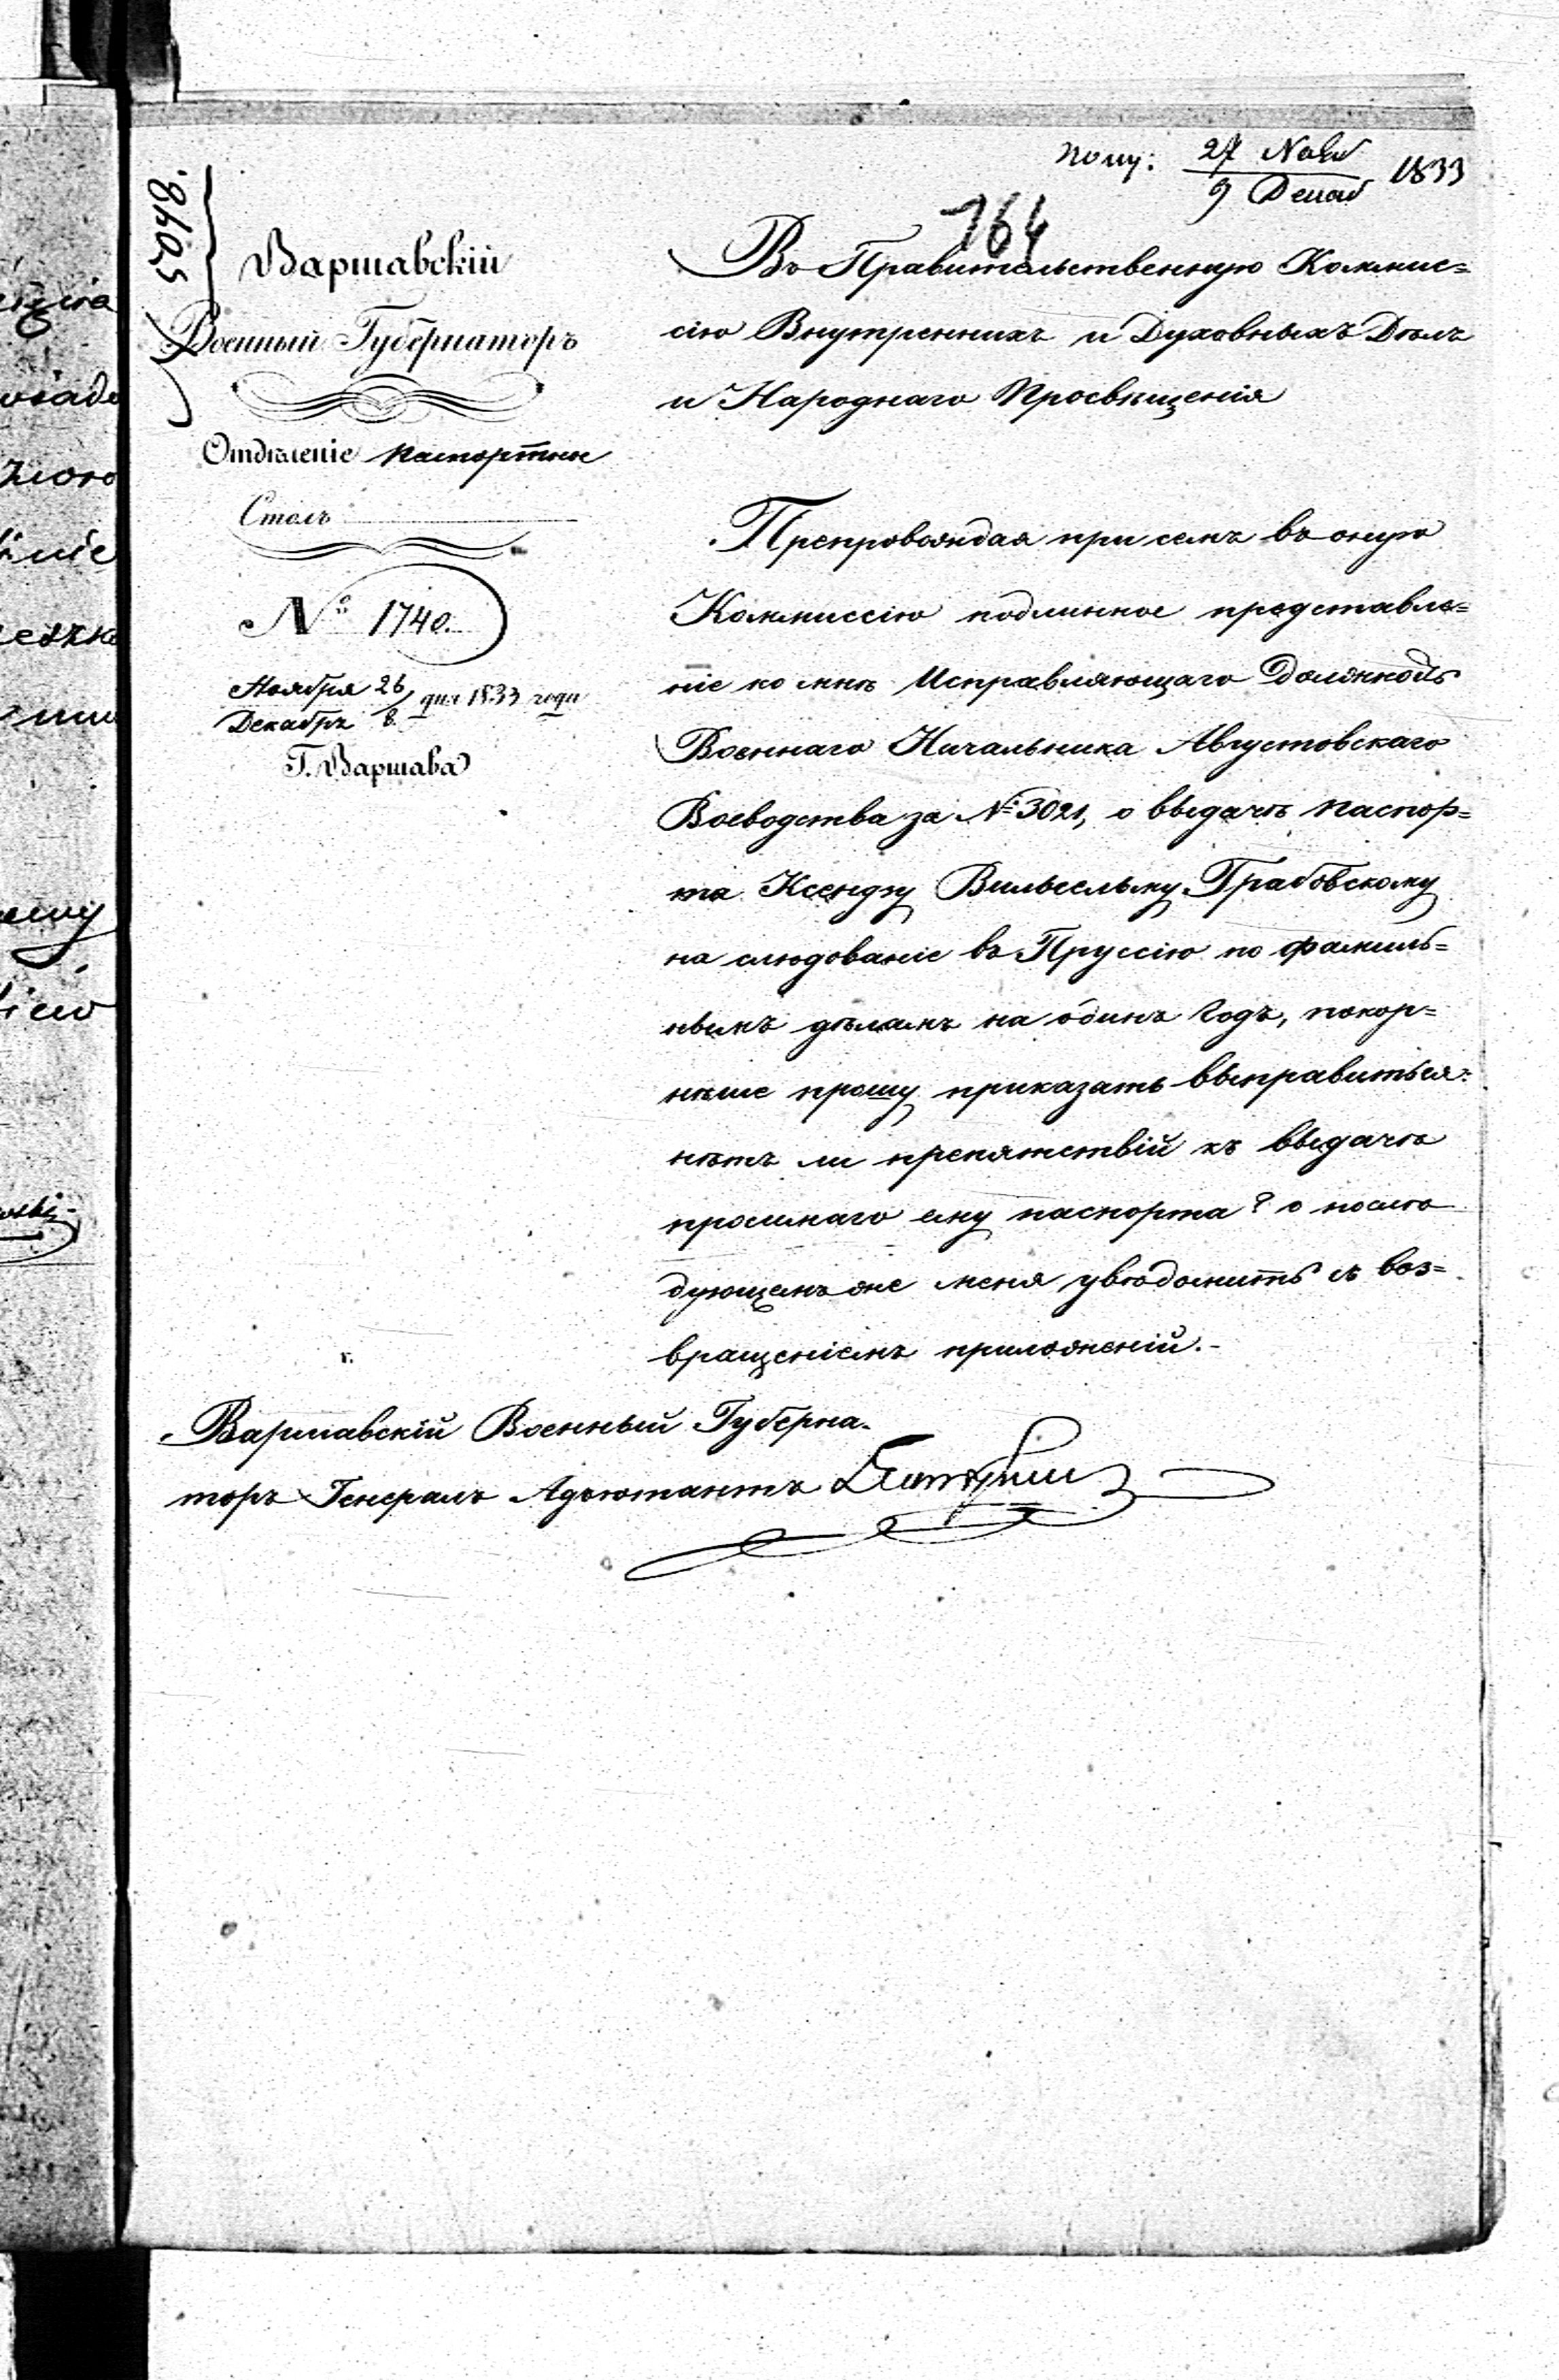 полу: 27 Нояб / 9 Декаб 1833
164
5048.
Варшавскій
Военный Губернаторъ
Отдѣленіе Паспортное
Столъ
№ 1740.
Ноября 26 / Декабрь 8 дня 1833 года
Г. Варшава
Въ Правительственную Коммис=
сію Внутреннихъ и Духовныхъ Дѣлъ
и Народнаго Просвѣщенія
Препровождая при семъ въ оную
Коммиссію подлинное представле=
ніе ко мнѣ Исправляющаго Должность
Военнаго Начальника Августовскаго
Воеводства за № 3021, о выдачѣ паспор=
та Ксендзу Вильгельму Грабовскому
на слѣдованіе въ Пруссію по фамиль=
нымъ дѣламъ на одинъ годъ, покор=
нѣше прошу приказать выправиться:
нѣтъ ли препятствій къ выдачѣ
просимаго ему паспорта? о послѣ
дующемъ же меня увѣдомить съ воз=
вращеніемъ приложеній.-
Варшавскій Военный Губерна-
торъ Генералъ Адъютантъ